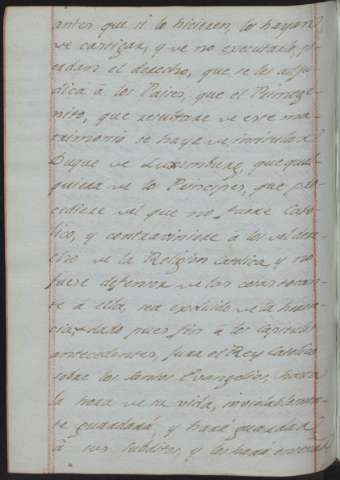 antes que si lo hicieren, los hayan
de castigar, y de no executarlo, pi-
erdan el derecho, que se les adju-
dica à los Paises, que el Primoge-
nito, que resultare de este ma-
trimonio se haya de intitular
Duque de Luxemburg, que qual-
quiera de los Principes, que pro-
cediere del que no fuere Cato-
lico, y contraviniere à los
de la Religion Catolica, y no
fuese defensor de las cosas tocan-
te à ella, sea excluido de la heren-
cia; dado pues fin à los capitulos
antecedentes, jura el Rey Catolico
sobre los Santos Evangelios, hasta
la hora de su vida, inviolablemen-
te guardará, y hará guardar
à sus subditos, y les hará